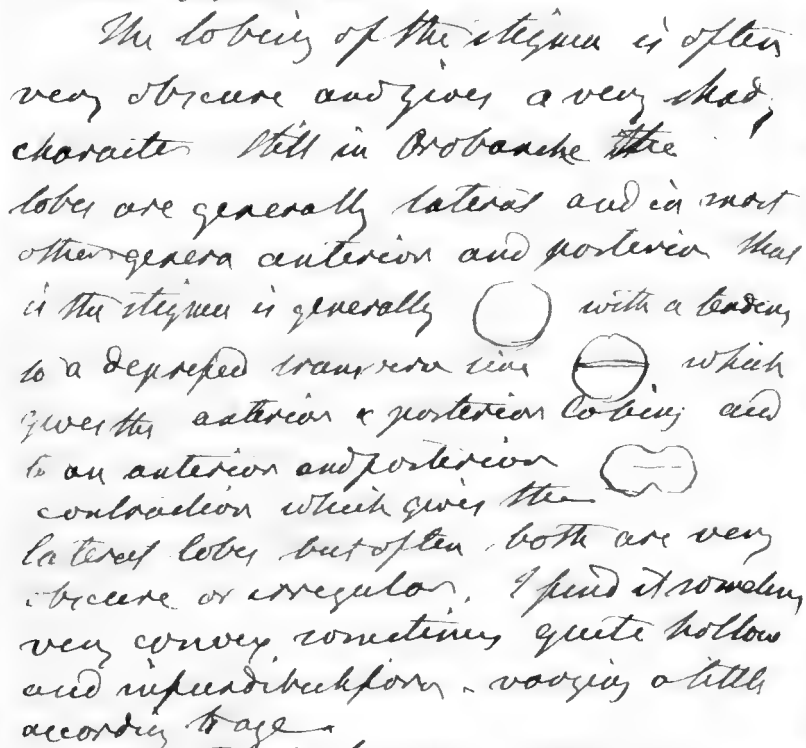 The lobing of the stigma is often
very obscure and gives a very shady
character Still in Orobanche the
lobes are generally lateral and in most
other genera anterior and posterior that
is the stigma is generally with a tendency
to a depressed transverse line which
gives the anterior & posterior lobing and
to an anterior and posterior
contraction which gives the
lateral lobes but often both are very
obscure or irregular. I find it sometimes
very convex sometimes quite hollow
and infundibuliform - varying a little
according to age.